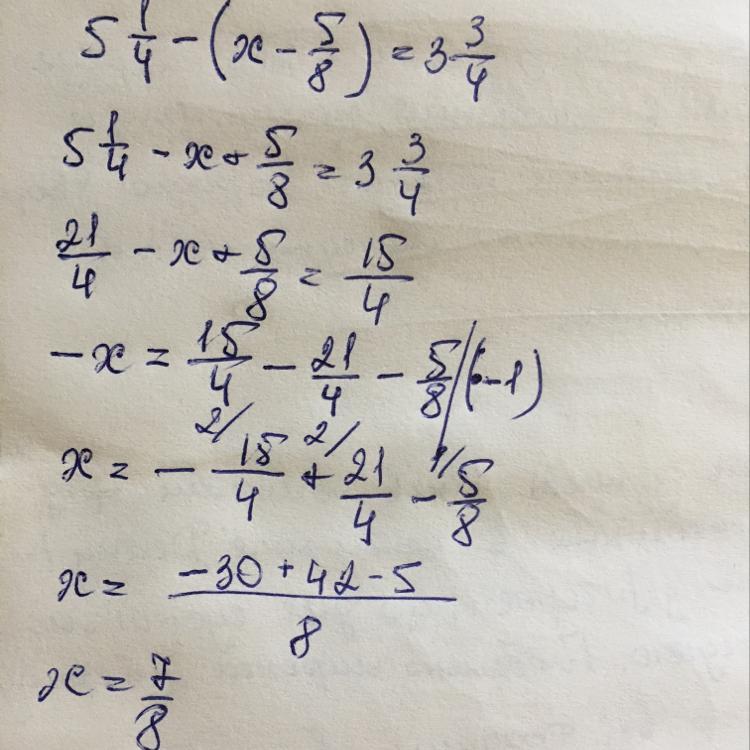 5 1/4 - (x - 5/8) = 3 3/4
5 1/4 - x + 5/8 = 3 3/4
21/4 - x + 5/8 = 15/4
-x = 15/4 - 21/4 - 5/8 / (: -1)
x = - 2/ 15/4 + 2/ 21/4 - 1/ 5/8
x = (-30 + 42 - 5)/8
x = 7/8